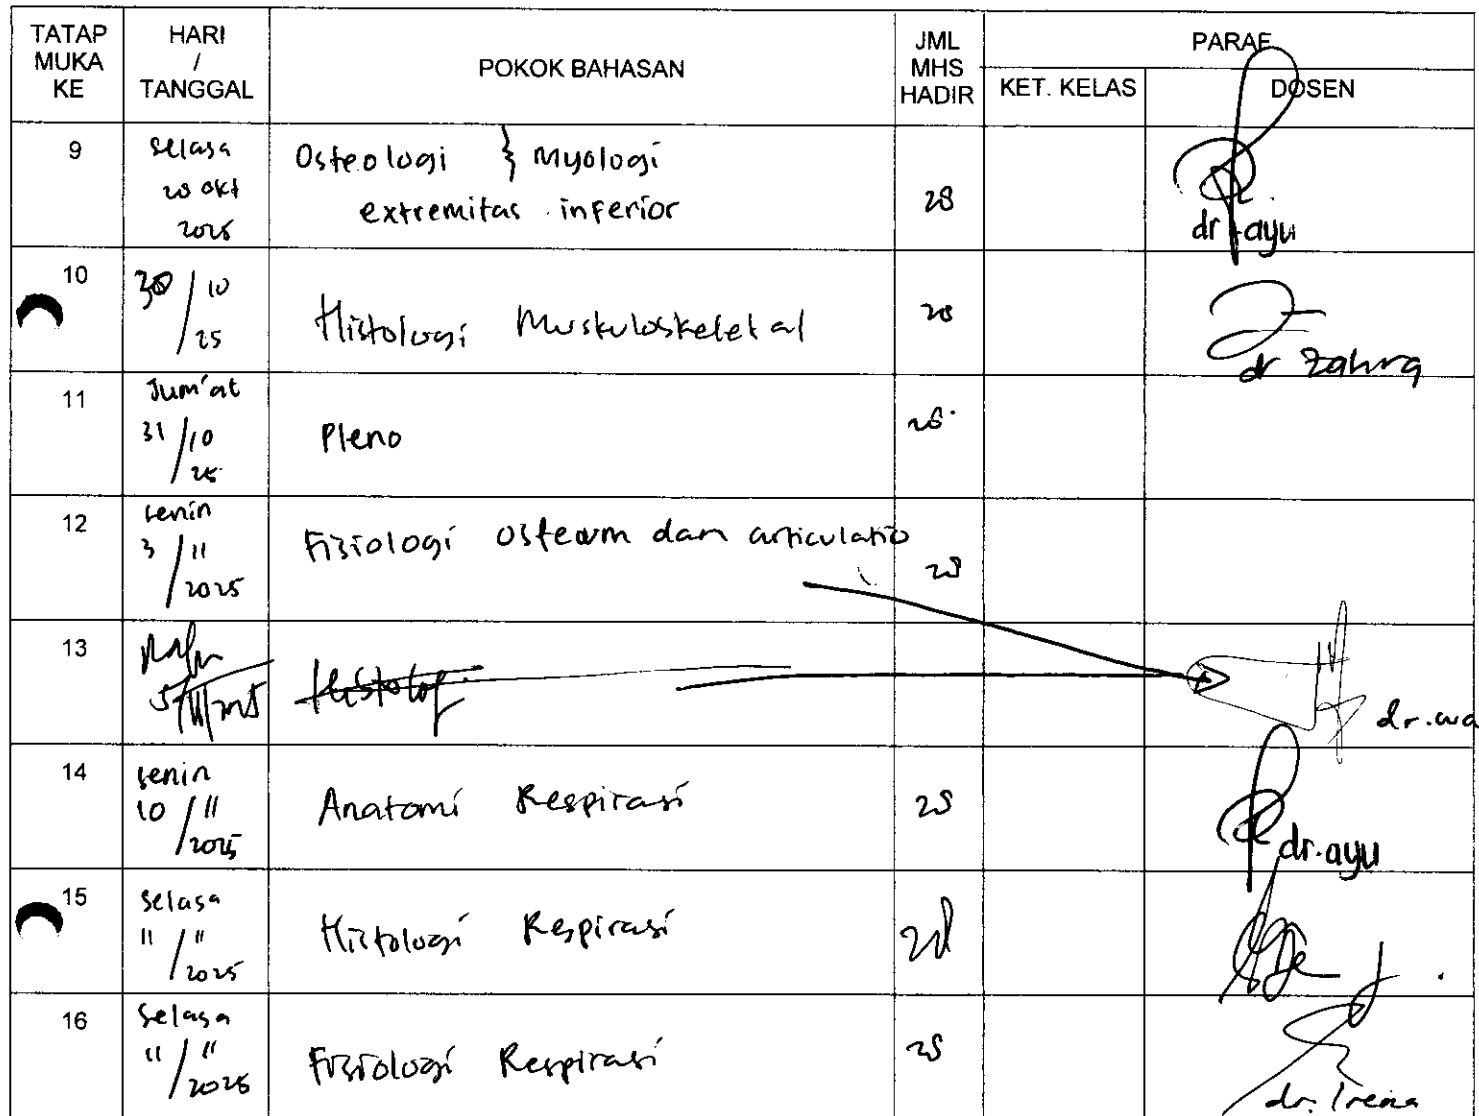 TATAP MUKA KE
HARI / TANGGAL
POKOK BAHASAN
JML MHS HADIR
PARAF
KET. KELAS
DOSEN
9
Selasa
28 okt
2025
Osteologi } Myologi
extremitas inferior
28
dr ayu
10
30/10
25
Histologi Muskuloskeletal
28
dr Zahra
11
Jum'at
31/10
25
Pleno
28
12
senin
3/11
2025
Fisiologi osteum dan articulatio
28
13
5/11/2025
Histologi
14
senin
10/11
2025
Anatomi Respirasi
28
dr. ayu
15
selasa
11/11
2025
Histologi Respirasi
28
16
selasa
11/11
2025
Fisiologi Respirasi
28
dr. Irena